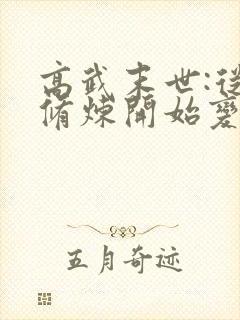 高武末世:從
脩煉開始變
五月奇迹